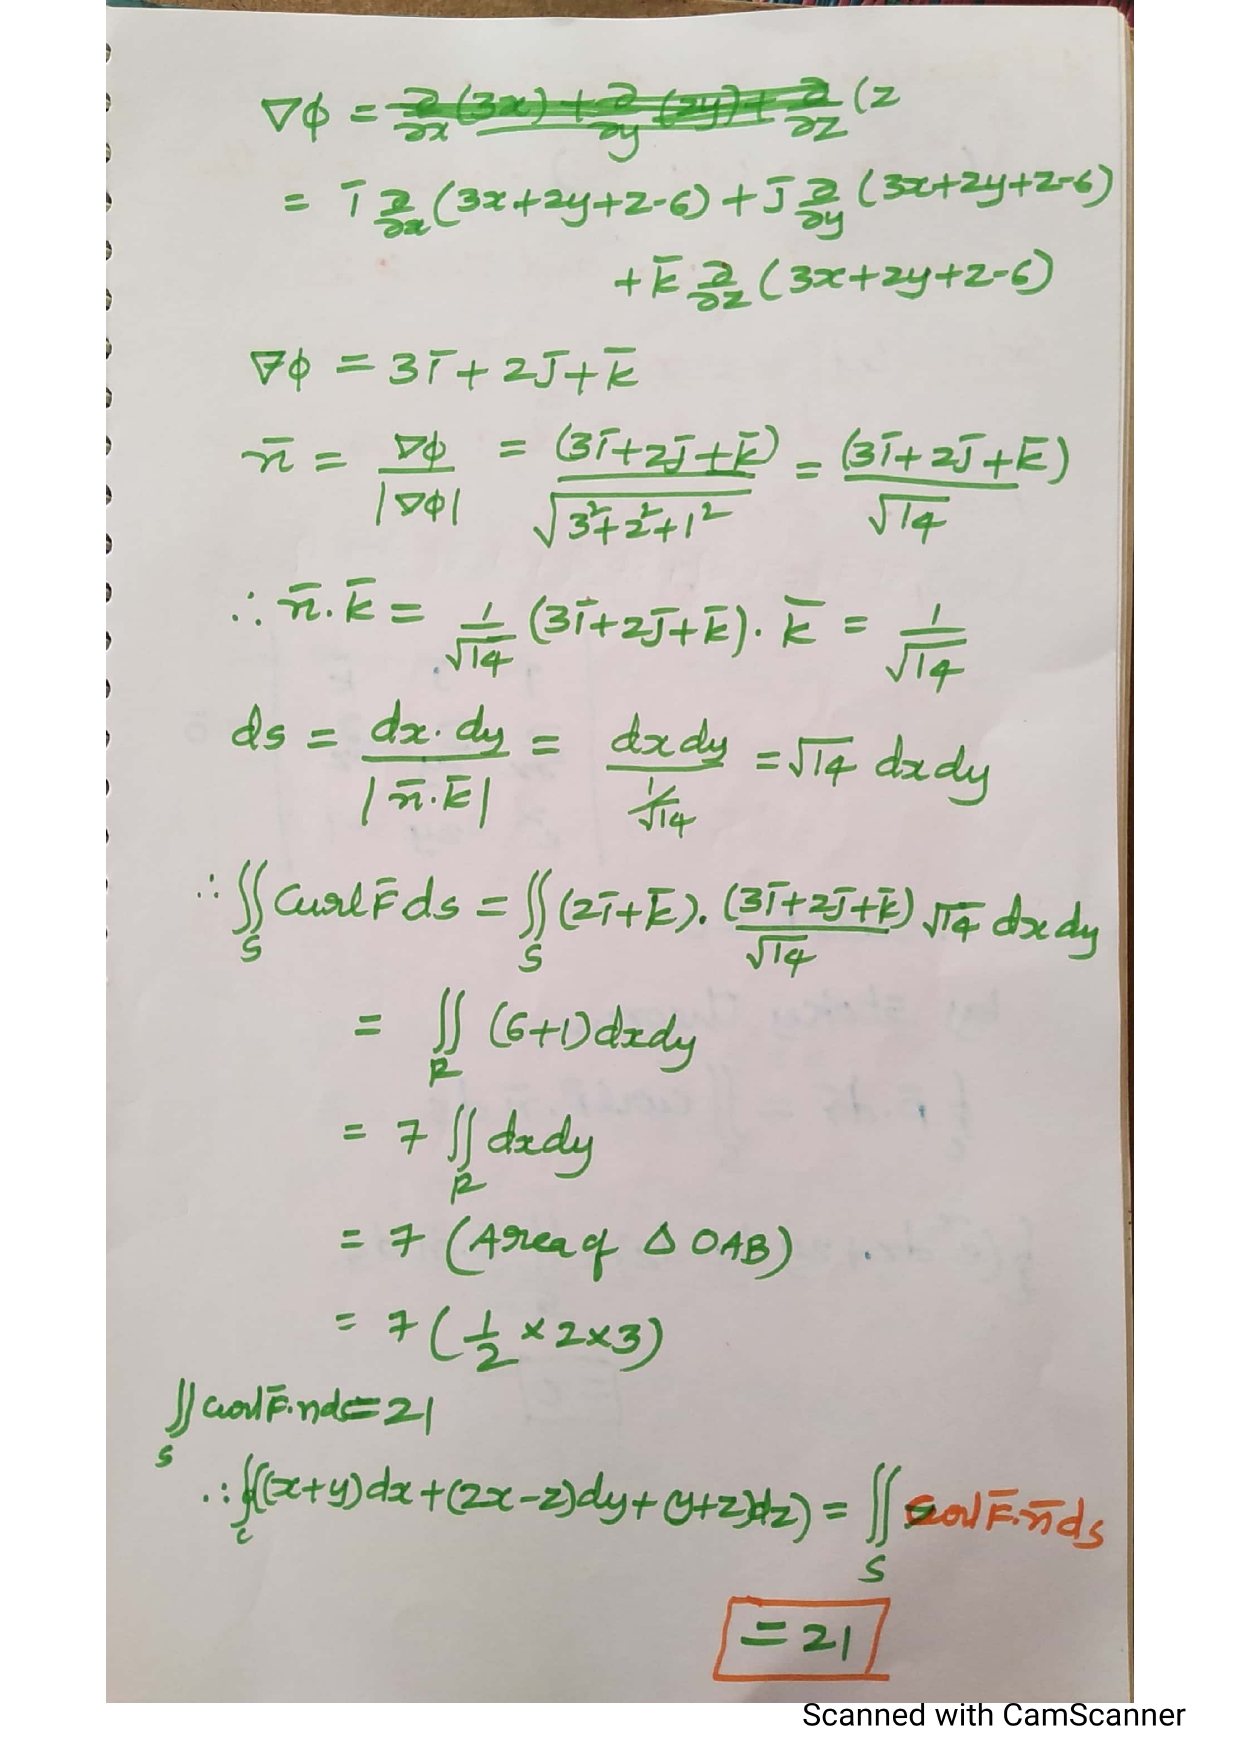 ∇φ = ∂/∂x (3x) + ∂/∂y (2y) + ∂/∂z (z
= ī ∂/∂x (3x+2y+z-6) + j̄ ∂/∂y (3x+2y+z-6)
+ k̄ ∂/∂z (3x+2y+z-6)
∇φ = 3ī + 2j̄ + k̄
n̄ = ∇φ/|∇φ| = (3ī+2j̄+k̄)/√(3²+2²+1²) = (3ī+2j̄+k̄)/√14
∴ n̄.k̄ = 1/√14 (3ī+2j̄+k̄). k̄ = 1/√14
ds = dx.dy/|n̄.k̄| = dxdy/(1/√14) = √14 dxdy
∴ ∬_S Curl F̄ ds = ∬_S (2ī+k̄). (3ī+2j̄+k̄)/√14 √14 dxdy
= ∬_R (6+1) dxdy
= 7 ∬_R dxdy
= 7 (Area of Δ OAB)
= 7 (1/2 × 2 × 3)
∬_S curl F̄.nds = 21
∴ ∮_c ((x+y)dx + (2x-z)dy + (y+z)dz) = ∬_S curl F̄.n̄ds
= 21
Scanned with CamScanner